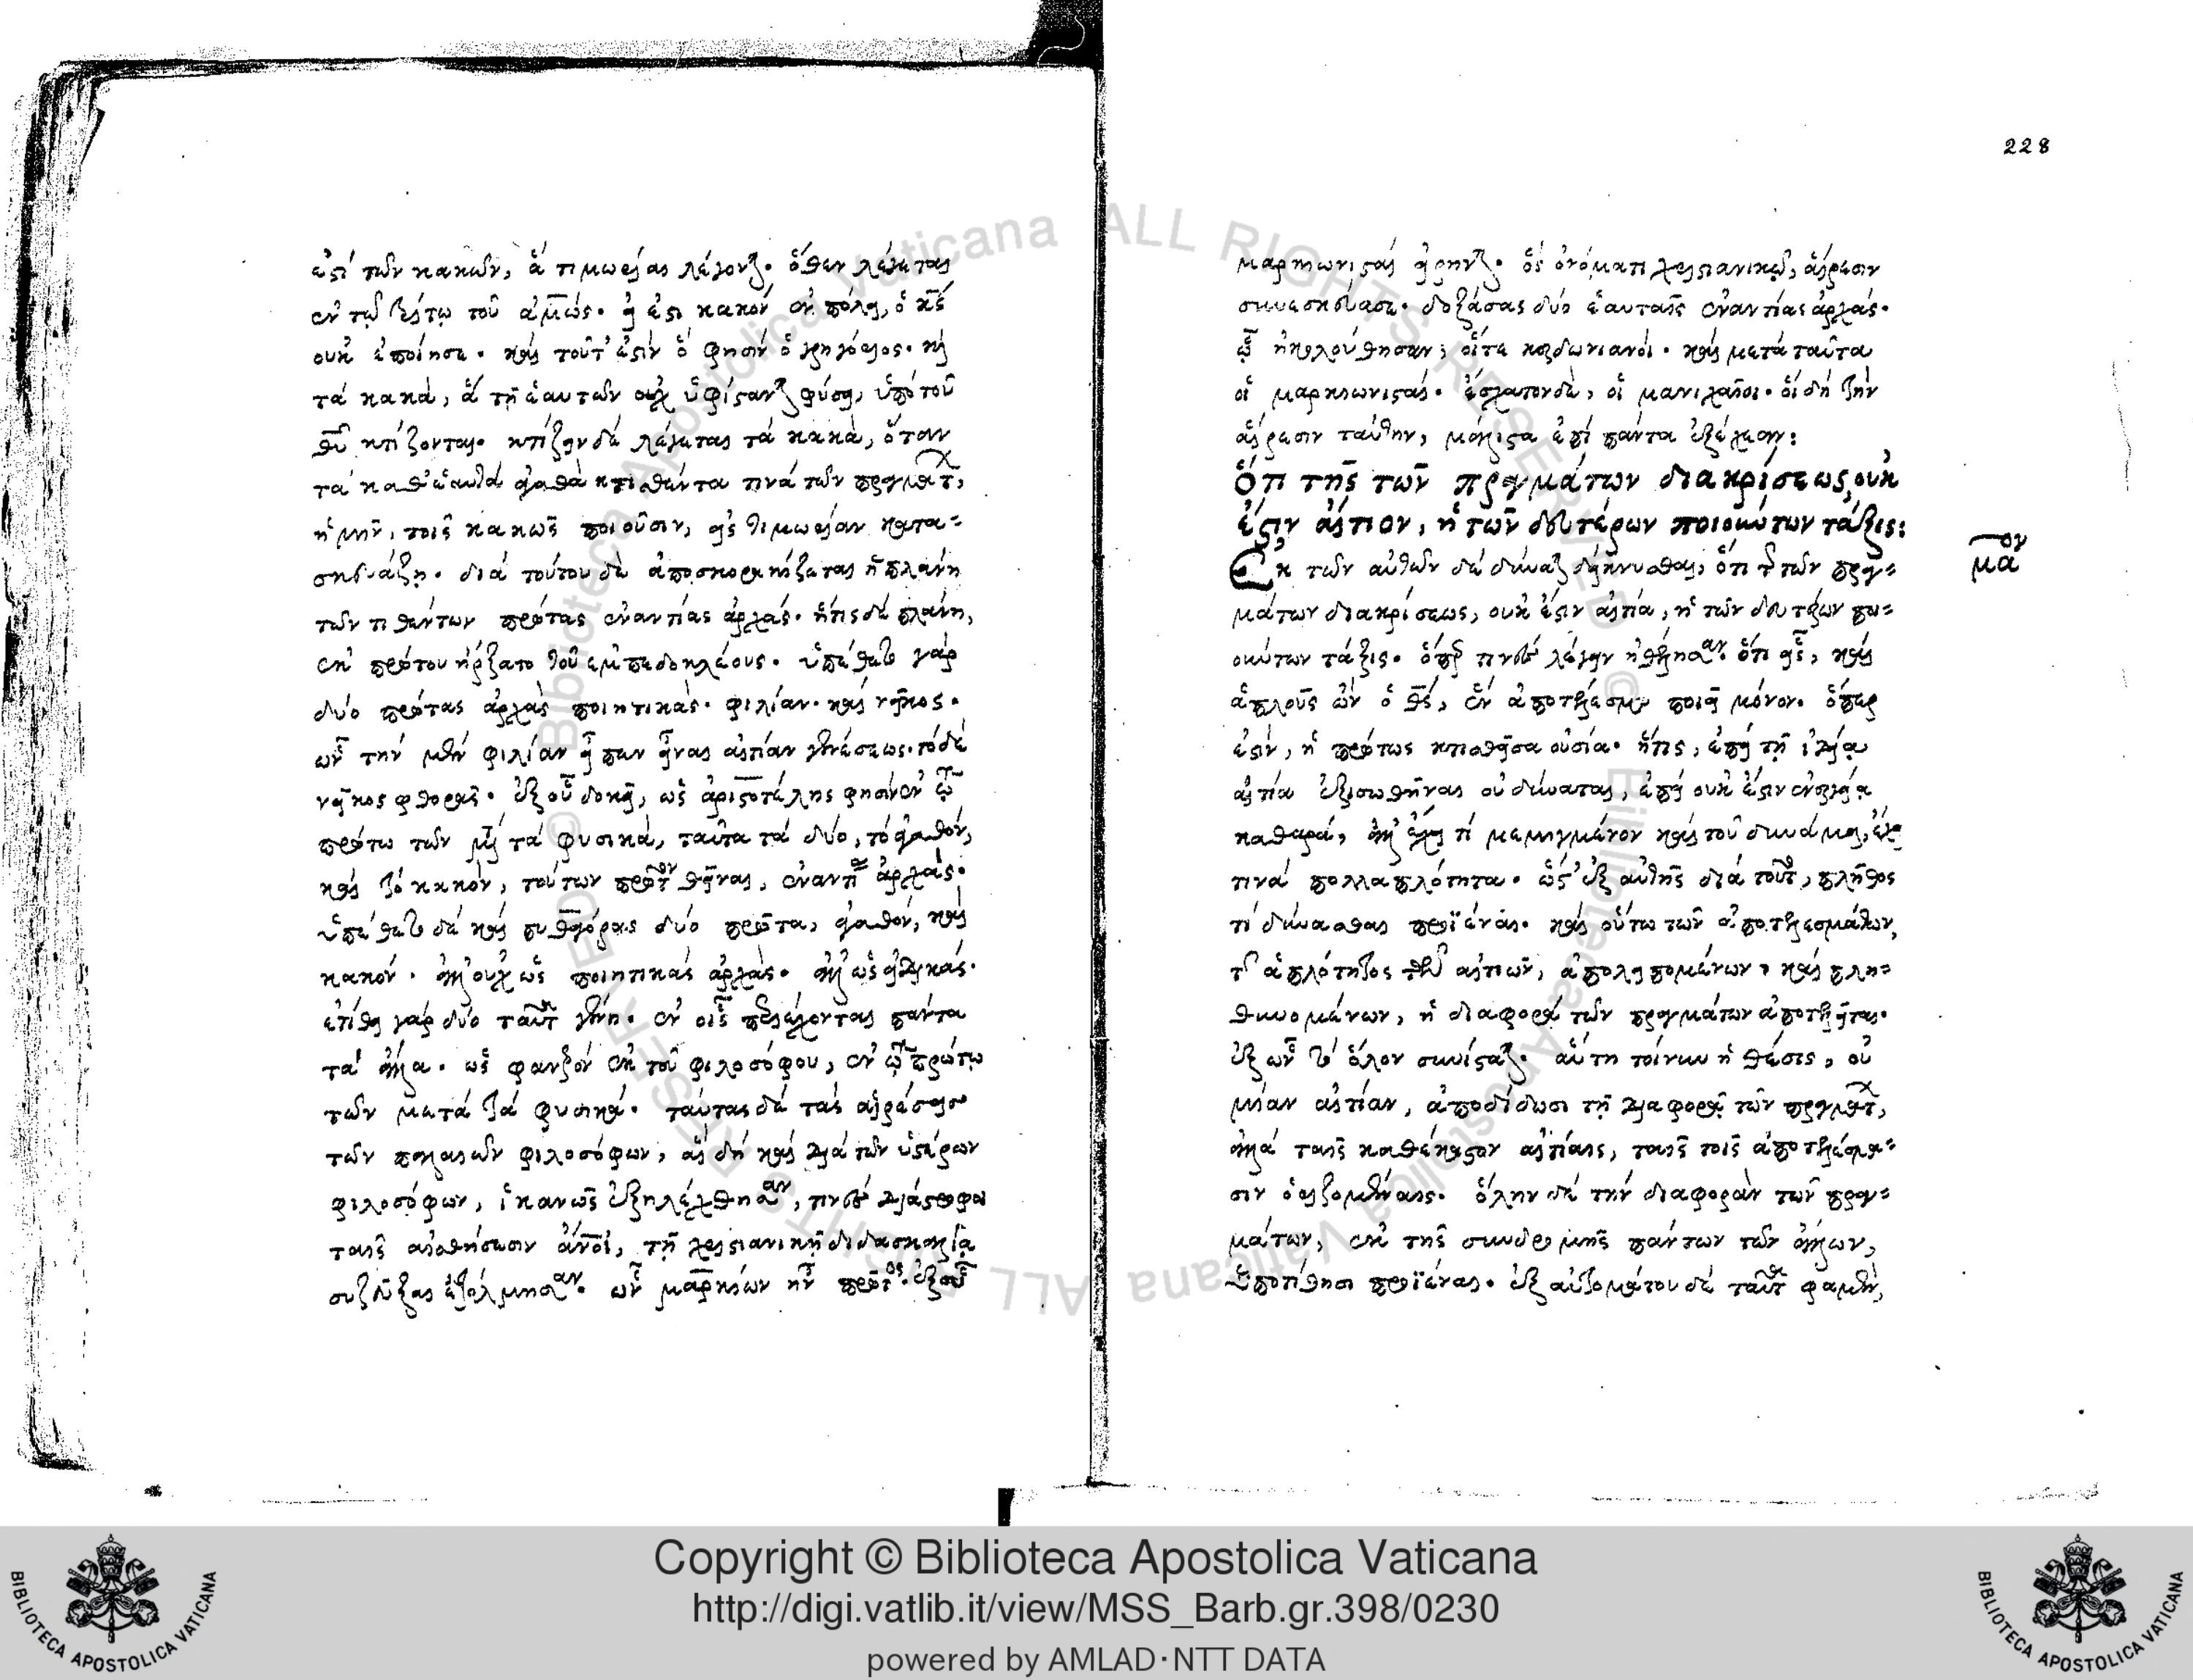 ἐστὶ τῶν κακῶν, ἃ τιμωρίας λέγοντ. ὅθεν λέγεται
ἐν τῷ τρίτῳ τοῦ ἀμώς. εἰ ἔστι κακὸν ἐν πόλει, ὃ κς
οὐκ ἐποίησε. καὶ τοῦτ' ἐστὶν ὅ φησιν ὁ γρηγόριος. καὶ
τὰ κακὰ, ἃ τῇ ἑαυτῶν οὐχ ὑφίσταντ φύσει, ὑπὸ τοῦ
θυ κτίζονται. κτίζειν δὲ λέγεται τὰ κακὰ, ὅταν
τὰ καθ' ἑαυτὰ ἀγαθὰ κτισθέντα τινὰ τῶν πραγμάτ,
ἡμῖν, τοῖς κακῶς ποιοῦσιν, εἰς τιμωρίαν κατα=
σκευάζῃ. διὰ τούτου δὲ ἀποσκορακίζεται ἡ πλάνη
τῶν τιθέντων πρώτας ἐναντίας ἀρχάς. ἥτις δὲ πλάνη,
ἐκ πρώτου ἤρξατο τοῦ ἐμπεδοκλέους. ὑπέθετο γὰρ
δύο πρώτας ἀρχὰς ποιητικάς. φιλίαν. καὶ νεῖκος.
ὧν τὴν μὲν φιλίαν εἶπεν εἶναι αἰτίαν γενέσεως. τὸ δὲ
νεῖκος φθορᾶς. ἐξ οὗ δοκεῖ, ὡς ἀριστοτέλης φησὶν ἐν τῷ
πρώτῳ τῶν μετὰ τὰ φυσικὰ, ταῦτα τὰ δύο, τὸ ἀγαθὸν,
καὶ τὸ κακὸν, τούτων πρῶτον θεῖναι, ἐναντίας ἀρχάς.
ὑπέθετο δὲ καὶ πυθαγόρας δύο πρῶτα, ἀγαθόν, καὶ
κακόν. ἀλλ' οὐχ ὡς ποιητικὰς ἀρχάς. ἀλλ' ὡς εἰδικάς.
ἐτίθει γὰρ δύο ταῦτα γένη. ἐν οἷς περιέχονται πάντα
τὰ ἄλλα. ὡς φανερὸν ἐκ τοῦ φιλοσόφου, ἐν τῷ πρώτῳ
τῶν μετὰ τὰ φυσικά. ταύτας δὲ τὰς αἱρέσεις
τῶν παλαιῶν φιλοσόφων, αἳ δὴ καὶ διὰ τῶν ὑστέρων
φιλοσόφων, ἱκανῶς ἐξηλέγχθησαν, τινὲς διάστροφοι
ταῖς αἰσθήσεσιν ἄνοι, τῇ χριστιανικῇ διδασκαλίᾳ
συζεῦξαι ἐτόλμησαν. ὧν μαρκίων ἦν πρῶτος. ἐξ οὗ
228
μαρκιωνισταὶ εἴρηντ. ὃς ὀνόματι χριστιανικῷ, αἵρεσιν
συνεσκεύασε. δοξάσας δύο ἑαυταῖς ἐναντίας ἀρχάς.
ᾧ ἠκολούθησαν; οἵτε κερδωνιανοί. καὶ μετὰ ταῦτα
οἱ μαρκιωνισταί. ἔσχατον δὲ, οἱ μανιχαῖοι. οἳ δὴ τὴν
αἵρεσιν ταύτην, μάλιστα ἐπὶ πάντα ἐξέχεαν:
Ὅτι τῆς τῶν πραγμάτων διακρίσεως, οὐκ
ἔστιν αἴτιον, ἡ τῶν δευτέρων ποιούντων τάξις:
μα ον
Ἐκ τῶν αὐτῶν δὲ δύναται δείκνυσθαι, ὅτι τῆς τῶν πραγ=
μάτων διακρίσεως, οὐκ ἔστιν αἰτία, ἡ τῶν δευτέρων ποι=
ούντων τάξις. ὅπερ τινὲς λέγειν ἠθέλησαν. ὅτι εἷς, καὶ
ἁπλοῦς ὢν ὁ θς, ἓν ἀποτέλεσμα ποιεῖ μόνον. ὅπερ
ἐστὶν, ἡ πρώτως κτισθεῖσα οὐσία. ἥτις, ἐπεὶ τῇ ἰδίᾳ
αἰτίᾳ ἐξισωθῆναι οὐ δύναται, ἐπεὶ οὐκ ἔστιν ἐνέργεια
καθαρά, ἀλλ' ἔχει τί μεμιγμένον καὶ τοῦ δυνάμει, ἔχει
τινὰ πολλαπλότητα. ὥστ' ἐξ αὐτῆς διὰ τοῦτο, πλῆθος
τί δύνασθαι προϊέναι. καὶ οὕτω τῶν ἀποτελεσμάτων,
τῆς ἁπλότητος τῶν αἰτιῶν, ἀπολειπομένων, καὶ πλη=
θυνομένων, ἡ διαφορὰ τῶν πραγμάτων ἀποτελεῖται.
ἐξ ὧν τὸ ὅλον συνίσταται. αὕτη τοίνυν ἡ θέσις, οὐ
μίαν αἰτίαν, ἀποδίδωσι τῇ διαφορᾷ τῶν πραγμάτ,
ἀλλὰ ταῖς καθέκαστον αἰτίαις, ταῖς τοῖς ἀποτελέσμα=
σιν ὁριζομέναις. ὅλην δὲ τὴν διαφορὰν τῶν πραγ=
μάτων, ἐκ τῆς συνδρομῆς πάντων τῶν ἄλλων,
ὑποτίθησι προϊέναι. ἐξ αὐτομάτου δὲ ταῦτα φαμὲν,
Copyright © Biblioteca Apostolica Vaticana
http://digi.vatlib.it/view/MSS_Barb.gr.398/0230
powered by AMLAD·NTT DATA
BIBLIOTECA APOSTOLICA VATICANA
BIBLIOTECA APOSTOLICA VATICANA